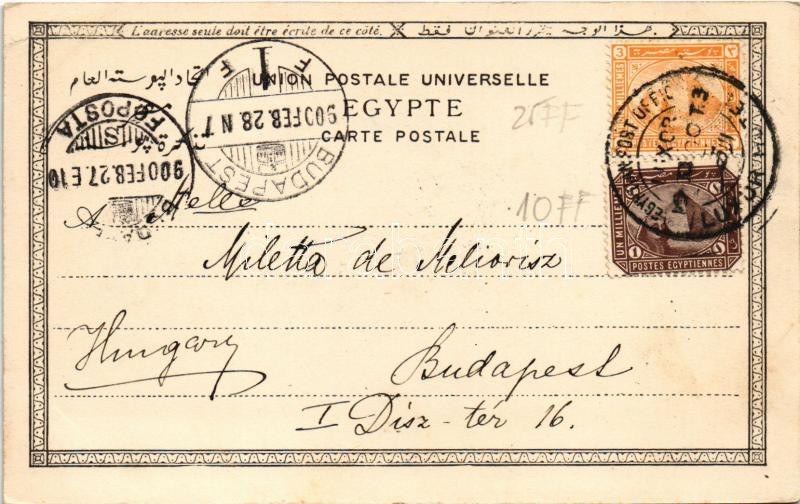 L'adresse seule doit être écrite de ce côté.
هذا الوجه يحرر العنوان فقط
اتحاد البوسته العام
UNION POSTALE UNIVERSELLE
EGYPTE
CARTE POSTALE
25FF
10FF
A Melle
Miletta de Meliorisz
Hungary
Budapest
I Disz-tér 16.
T F
F
900 FEB. 28. N 7
BUDAPEST
FŐPOSTA
900 FEB. 27. E 10
3 MILLIEMES
EGYPTIAN POST OFFICE
LUXOR
UN MILLIEME
1
POSTES EGYPTIENNES